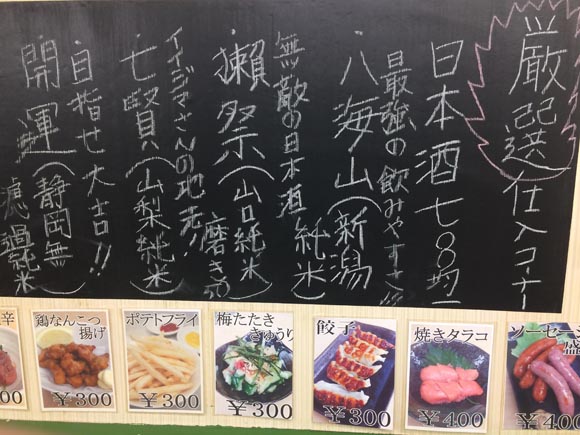 厳選仕入コーナー
日本酒七〇〇均一
最強の飲みやすさ
八海山(新潟純米)
無敵の日本酒
獺祭(山口純米)磨き
イイジマさんの地元!
七賢(山梨純米)
目指せ大吉!!
開運(静岡無濾過純米
辛
00
鶏なんこつ
揚げ
¥300
ポテトフライ
¥300
梅たたき
きゅうり
¥300
餃子
¥300
焼きタラコ
¥400
ソーセージ
盛
¥400